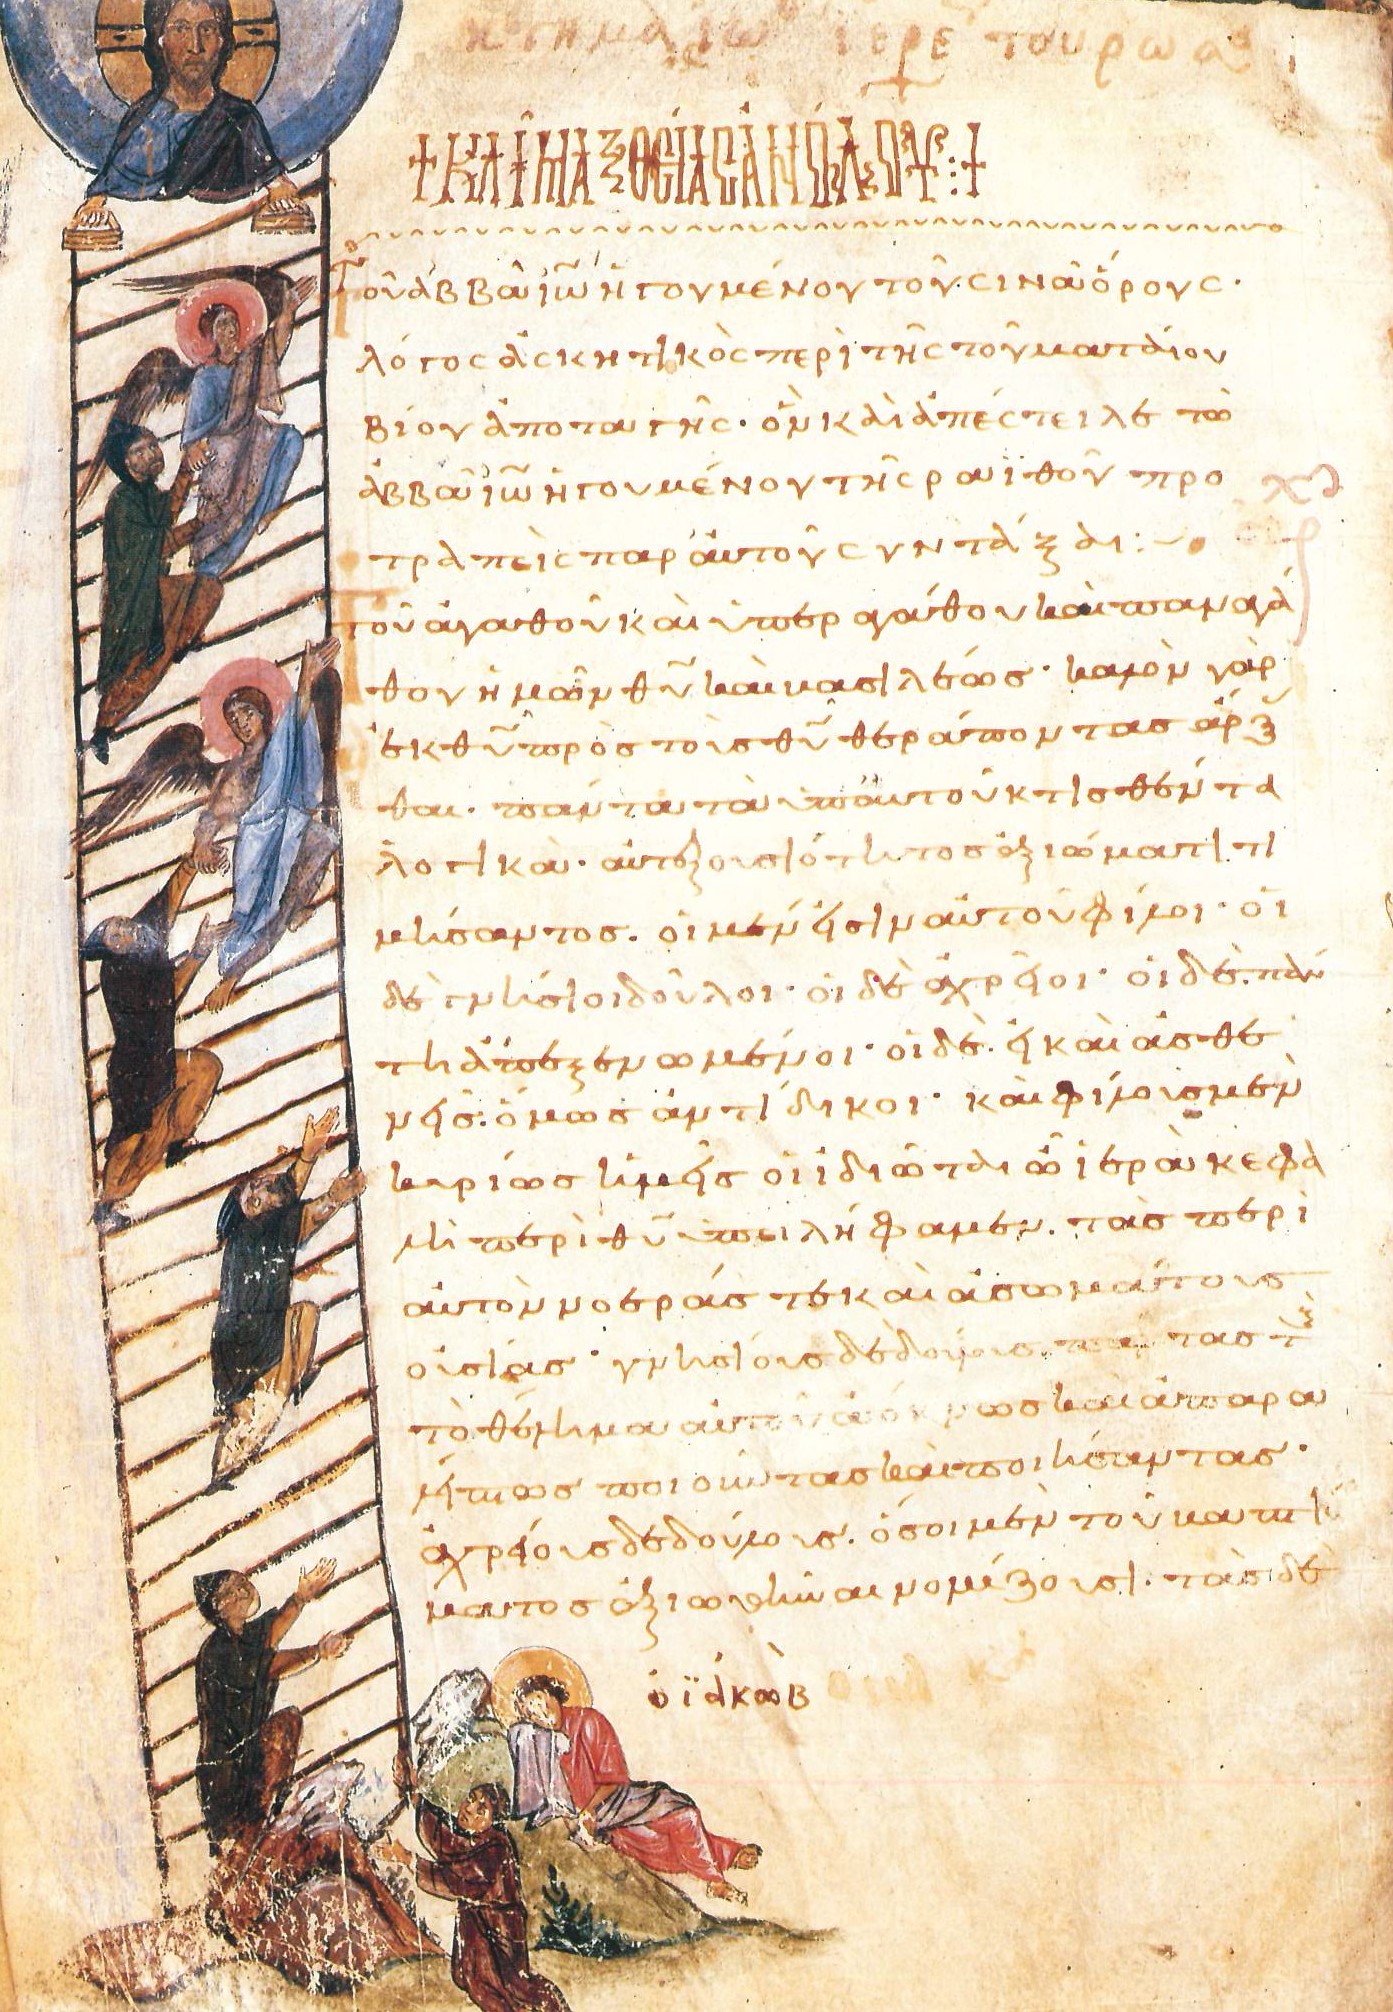 κτημα ιω ιερε του ρω
+ ΚΛΙΜΑΞ ΘΕΙΑΣ ΑΝΟΔΟΥ :+
Τοῦ ἀββᾶ ἰω ἡγουμένου τοῦ σινᾶ ὄρους·
λόγος ἀσκητικὸς περὶ τῆς τοῦ ματαίου
βίου ἀποταγῆς· ὃν καὶ ἀπέστειλε τῶ
ἀββᾶ ἰω ἡγουμένου τῆς ραϊθοῦ προ
τραπεὶς παρ' αὐτοῦ συντάξαι :
Τοῦ ἀγαθοῦ καὶ ὑπεραγάθου καὶ παναγά
θου ἡμῶν θῦ καὶ βασιλέως· καλὸν γὰρ
ἐκ θῦ πρὸς τοὺς θῦ θεράποντας ἄρξ
θαι· πάντων τῶν ὑπ' αὐτοῦ κτισθέντ
λογικῶν· αὐτεξουσιότητος ἀξιώματι τι
μήσαντος. οἱ μέν εἰσιν αὐτοῦ φίλοι· οἱ
δὲ γνήσιοι δοῦλοι· οἱ δὲ ἀχρεῖοι· οἱ δὲ παν
τῆ ἀπεξενωμένοι· οἱ δὲ εἰ καὶ ἀσθε
νεῖς· ὅμως ἀντίδικοι· καὶ φίλους μὲν
κυρίως ἡμεῖς οἱ ἰδιῶται ὦ ἱερὰ κεφα
λὴ περὶ θῦ ὑπειλήφαμεν. τὰς περὶ
αὐτὸν νοεράς τε καὶ ἀσωμάτους
οὐσίας· γνησίους δὲ δούλους πάντας τ
τὸ θέλημα αὐτοῦ ἀόκνως καὶ ἀπαρα
λείπτως ποιοῦντας καὶ ποιήσαντας·
ἀχρείους δὲ δούλους. ὅσοι μὲν τοῦ βαπτί
ματος ἀξιωθῆναι νομίζουσι· τὰς δὲ
ὁ ϊἀκὼβ